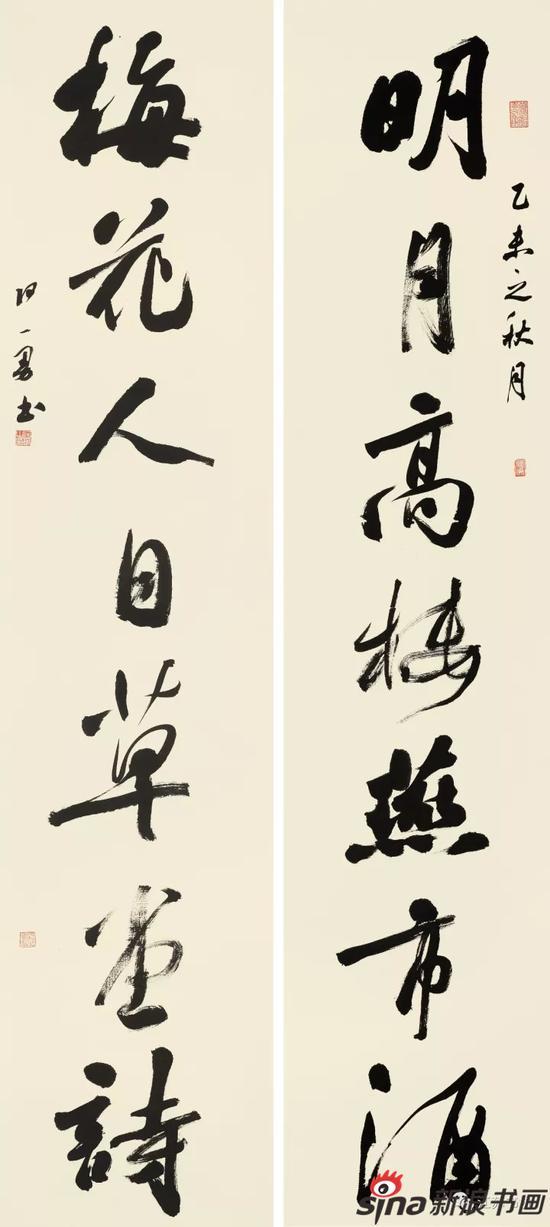 明月高楼燕市酒
乙未之秋月
梅花人日草堂詩
一勇书
sina新浪书画